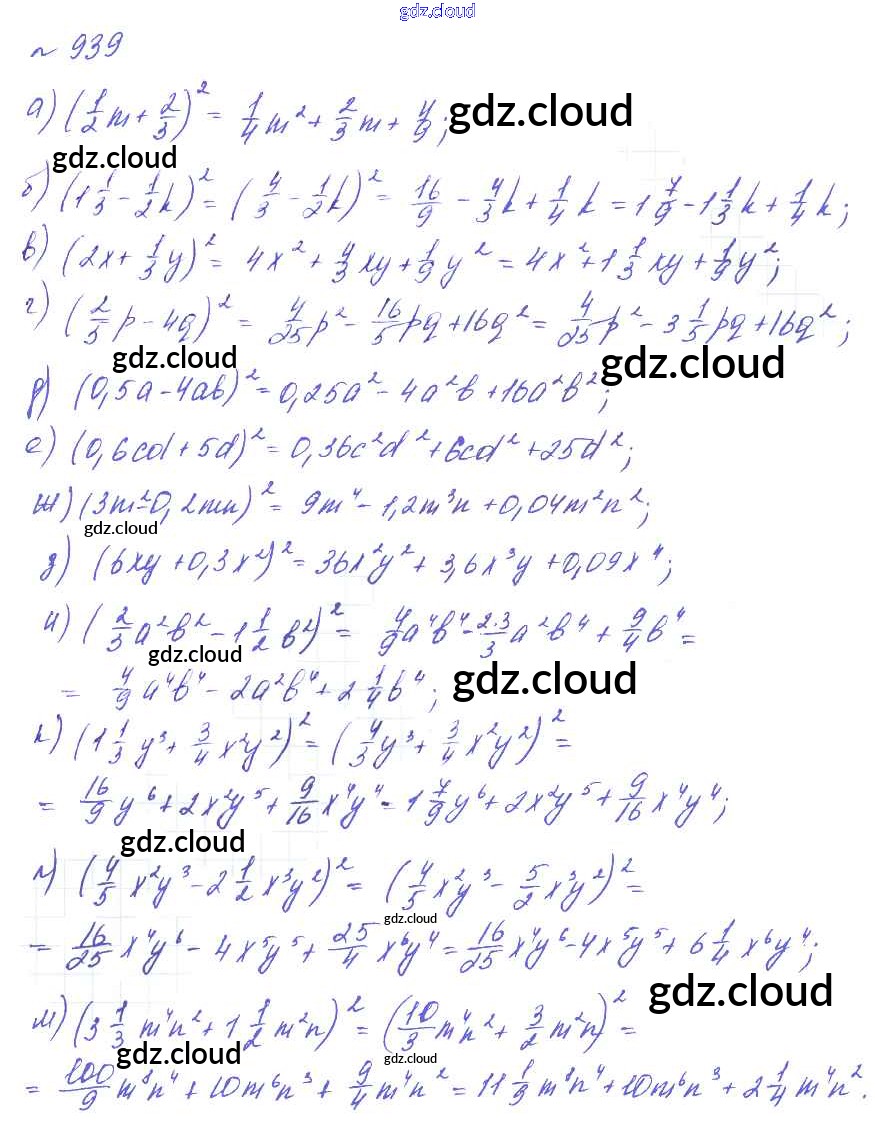 gdz.cloud
№ 939
а) (1/2 m + 2/3)² = 1/4 m² + 2/3 m + 4/9; gdz.cloud
gdz.cloud
б) (1 1/3 - 1/2 k)² = (4/3 - 1/2 k)² = 16/9 - 4/3 k + 1/4 k = 1 7/9 - 1 1/3 k + 1/4 k;
в) (2x + 1/3 y)² = 4x² + 4/3 xy + 1/9 y² = 4x² + 1 1/3 xy + 1/9 y²;
г) (2/5 p - 4q)² = 4/25 p² - 16/5 pq + 16q² = 4/25 p² - 3 1/5 pq + 16q²;
gdz.cloud gdz.cloud
д) (0,5a - 4ab)² = 0,25a² - 4a²b + 16a²b²;
е) (0,6cd + 5d)² = 0,36c²d² + 6cd² + 25d²;
ж) (3m² - 0,2mn)² = 9m⁴ - 1,2m³n + 0,04m²n²;
gdz.cloud
з) (6xy + 0,3x²)² = 36x²y² + 3,6x³y + 0,09x⁴;
и) (2/3 a²b² - 1 1/2 b²)² = 4/9 a⁴b⁴ - 2·3/3 a²b⁴ + 9/4 b⁴ =
gdz.cloud
= 4/9 a⁴b⁴ - 2a²b⁴ + 2 1/4 b⁴; gdz.cloud
к) (1 1/3 y³ + 3/4 x²y²)² = (4/3 y³ + 3/4 x²y²)² =
= 16/9 y⁶ + 2x²y⁵ + 9/16 x⁴y⁴ = 1 7/9 y⁶ + 2x²y⁵ + 9/16 x⁴y⁴;
gdz.cloud
л) (4/5 x²y³ - 2 1/2 x³y²)² = (4/5 x²y³ - 5/2 x³y²)² =
gdz.cloud
= 16/25 x⁴y⁶ - 4x⁵y⁵ + 25/4 x⁶y⁴ = 16/25 x⁴y⁶ - 4x⁵y⁵ + 6 1/4 x⁶y⁴;
gdz.cloud
м) (3 1/3 m⁴n² + 1 1/2 m²n)² = (10/3 m⁴n² + 3/2 m²n)² =
gdz.cloud gdz.cloud
= 100/9 m⁸n⁴ + 10m⁶n³ + 9/4 m⁴n² = 11 1/9 m⁸n⁴ + 10m⁶n³ + 2 1/4 m⁴n².